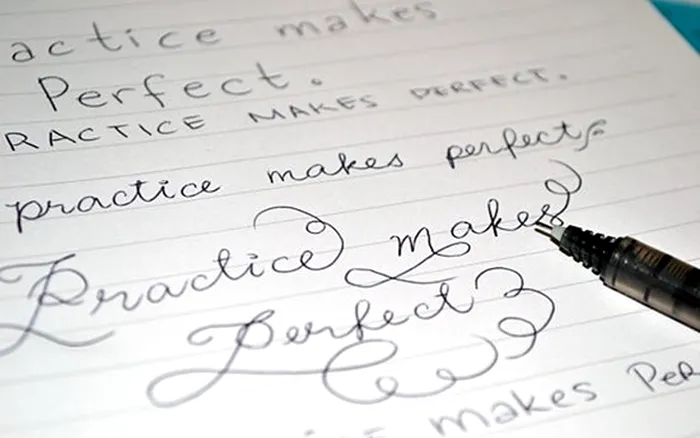 actice makes
Perfect.
RACTICE MAKES PERFECT.
practice makes perfect
Practice makes
Perfect
makes Per